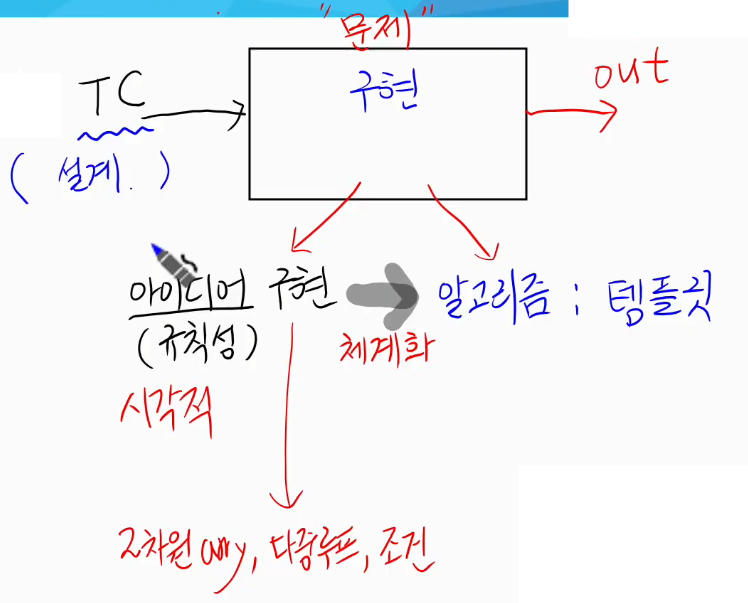 "문제"
구현
TC
out
( 설계. )
아이디어 구현
(규칙성)
체계화
알고리즘 ; 템플릿
시각적
2차원 array, 다중루프, 조건